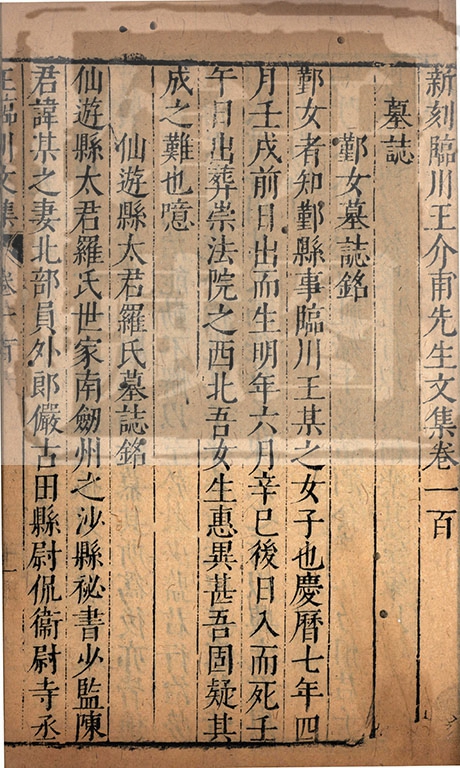 新刻臨川王介甫先生文集卷一百
墓誌
鄞女墓誌銘
鄞女者知鄞縣事臨川王某之女子也慶曆七年四
月壬戌前日出而生明年六月辛巳後日入而死壬
午日出葬崇法院之西北吾女生惠異甚吾固疑其
成之難也噫
仙遊縣太君羅氏墓誌銘
仙遊縣太君羅氏世家南劒州之沙縣祕書少監陳
君諱某之妻北部員外郎儼古田縣尉侃衞尉寺丞
王臨川文集 卷一百